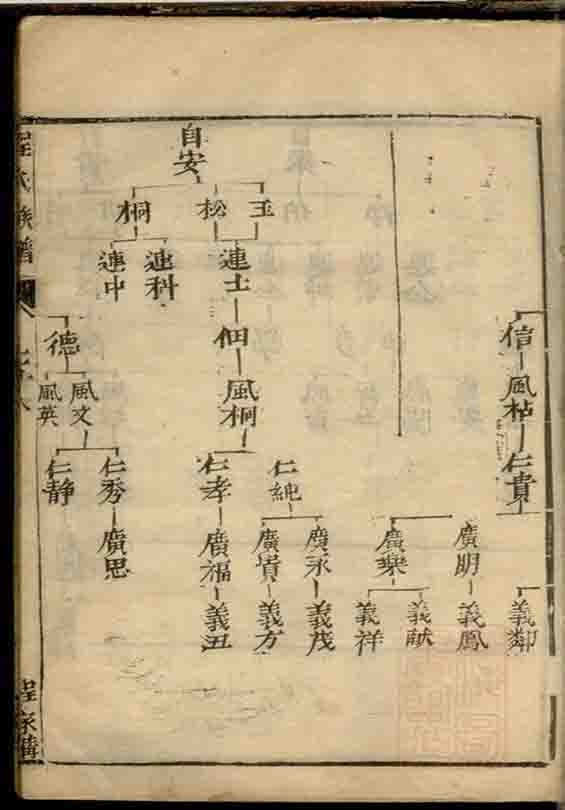 信
風
仁貴
義鄰
廣明
義鳳
廣樂
義献
義祥
自安
玉
松
桐
連士
連科
連中
佃
風桐
仁純
仁孝
廣永
廣
廣福
義茂
義方
義丑
德
風文
風英
仁秀
仁静
廣思
程氏族譜